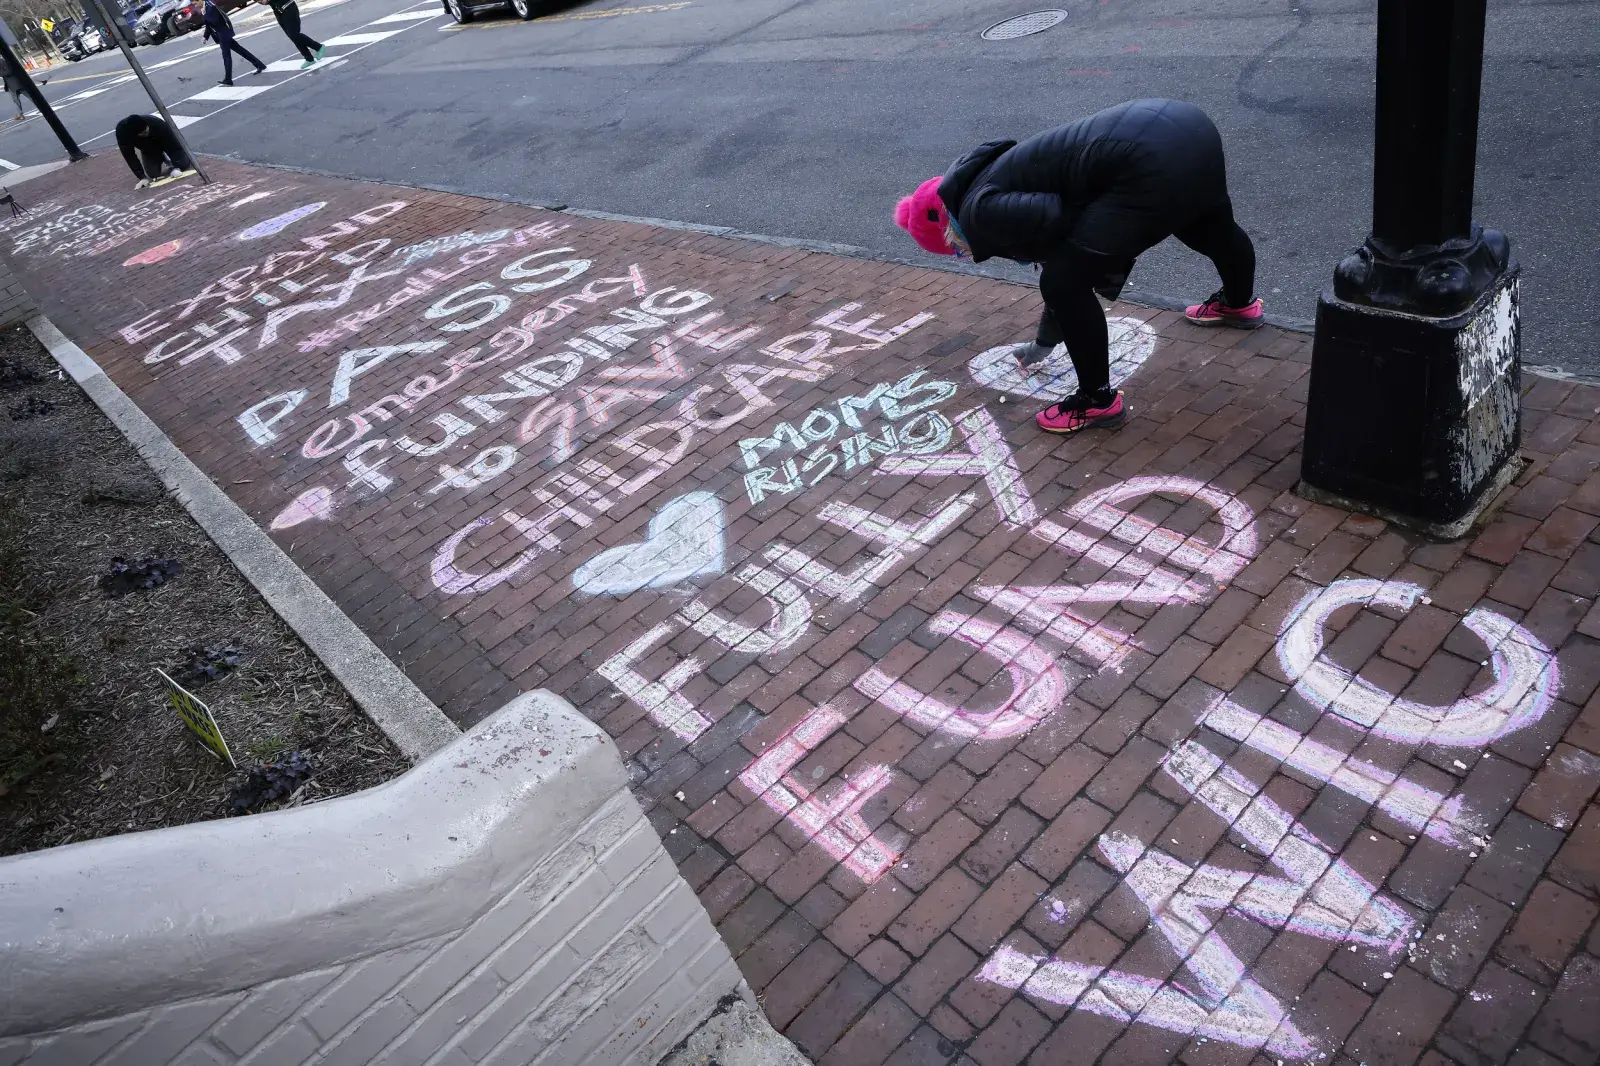 EXPAND
CHILD
TAX
moms
RISING
#RealLOVE
PASS
emergency
FUNDING
to SAVE
CHILDCARE
MOMS
RISING
FULLY
FUND
WIC